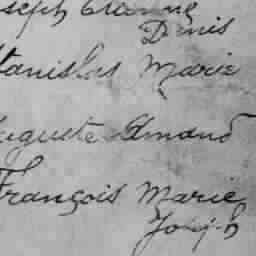 oseph Etienne
Denis
tanislas Marie
uguste Amand
François Marie
Joseph